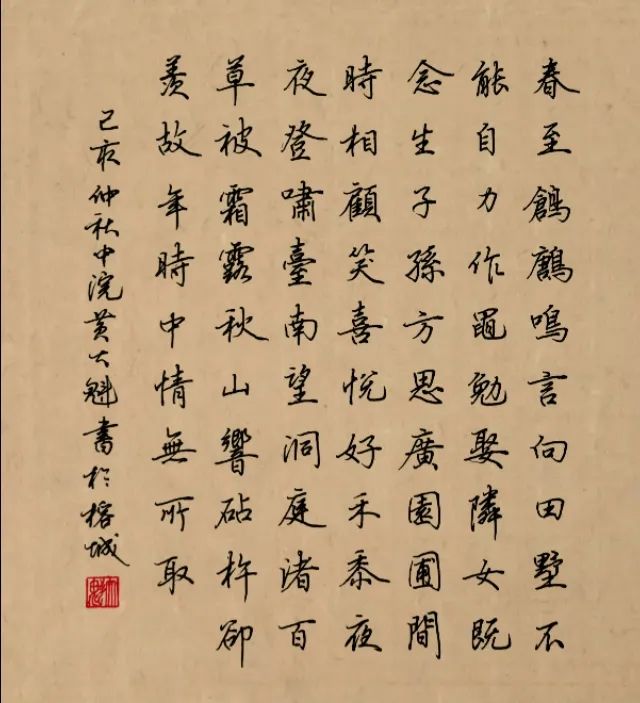 春至鶬鶊鳴言向田墅不
能自力作黽勉娶隣女既
念生子孫方思廣園圃間
時相顧笑喜悅好禾黍夜
夜登嘯臺南望洞庭渚百
草被霜露秋山響砧杵卻
羨故年時中情無所取
己亥仲秋中浣黄大魁書於榕城